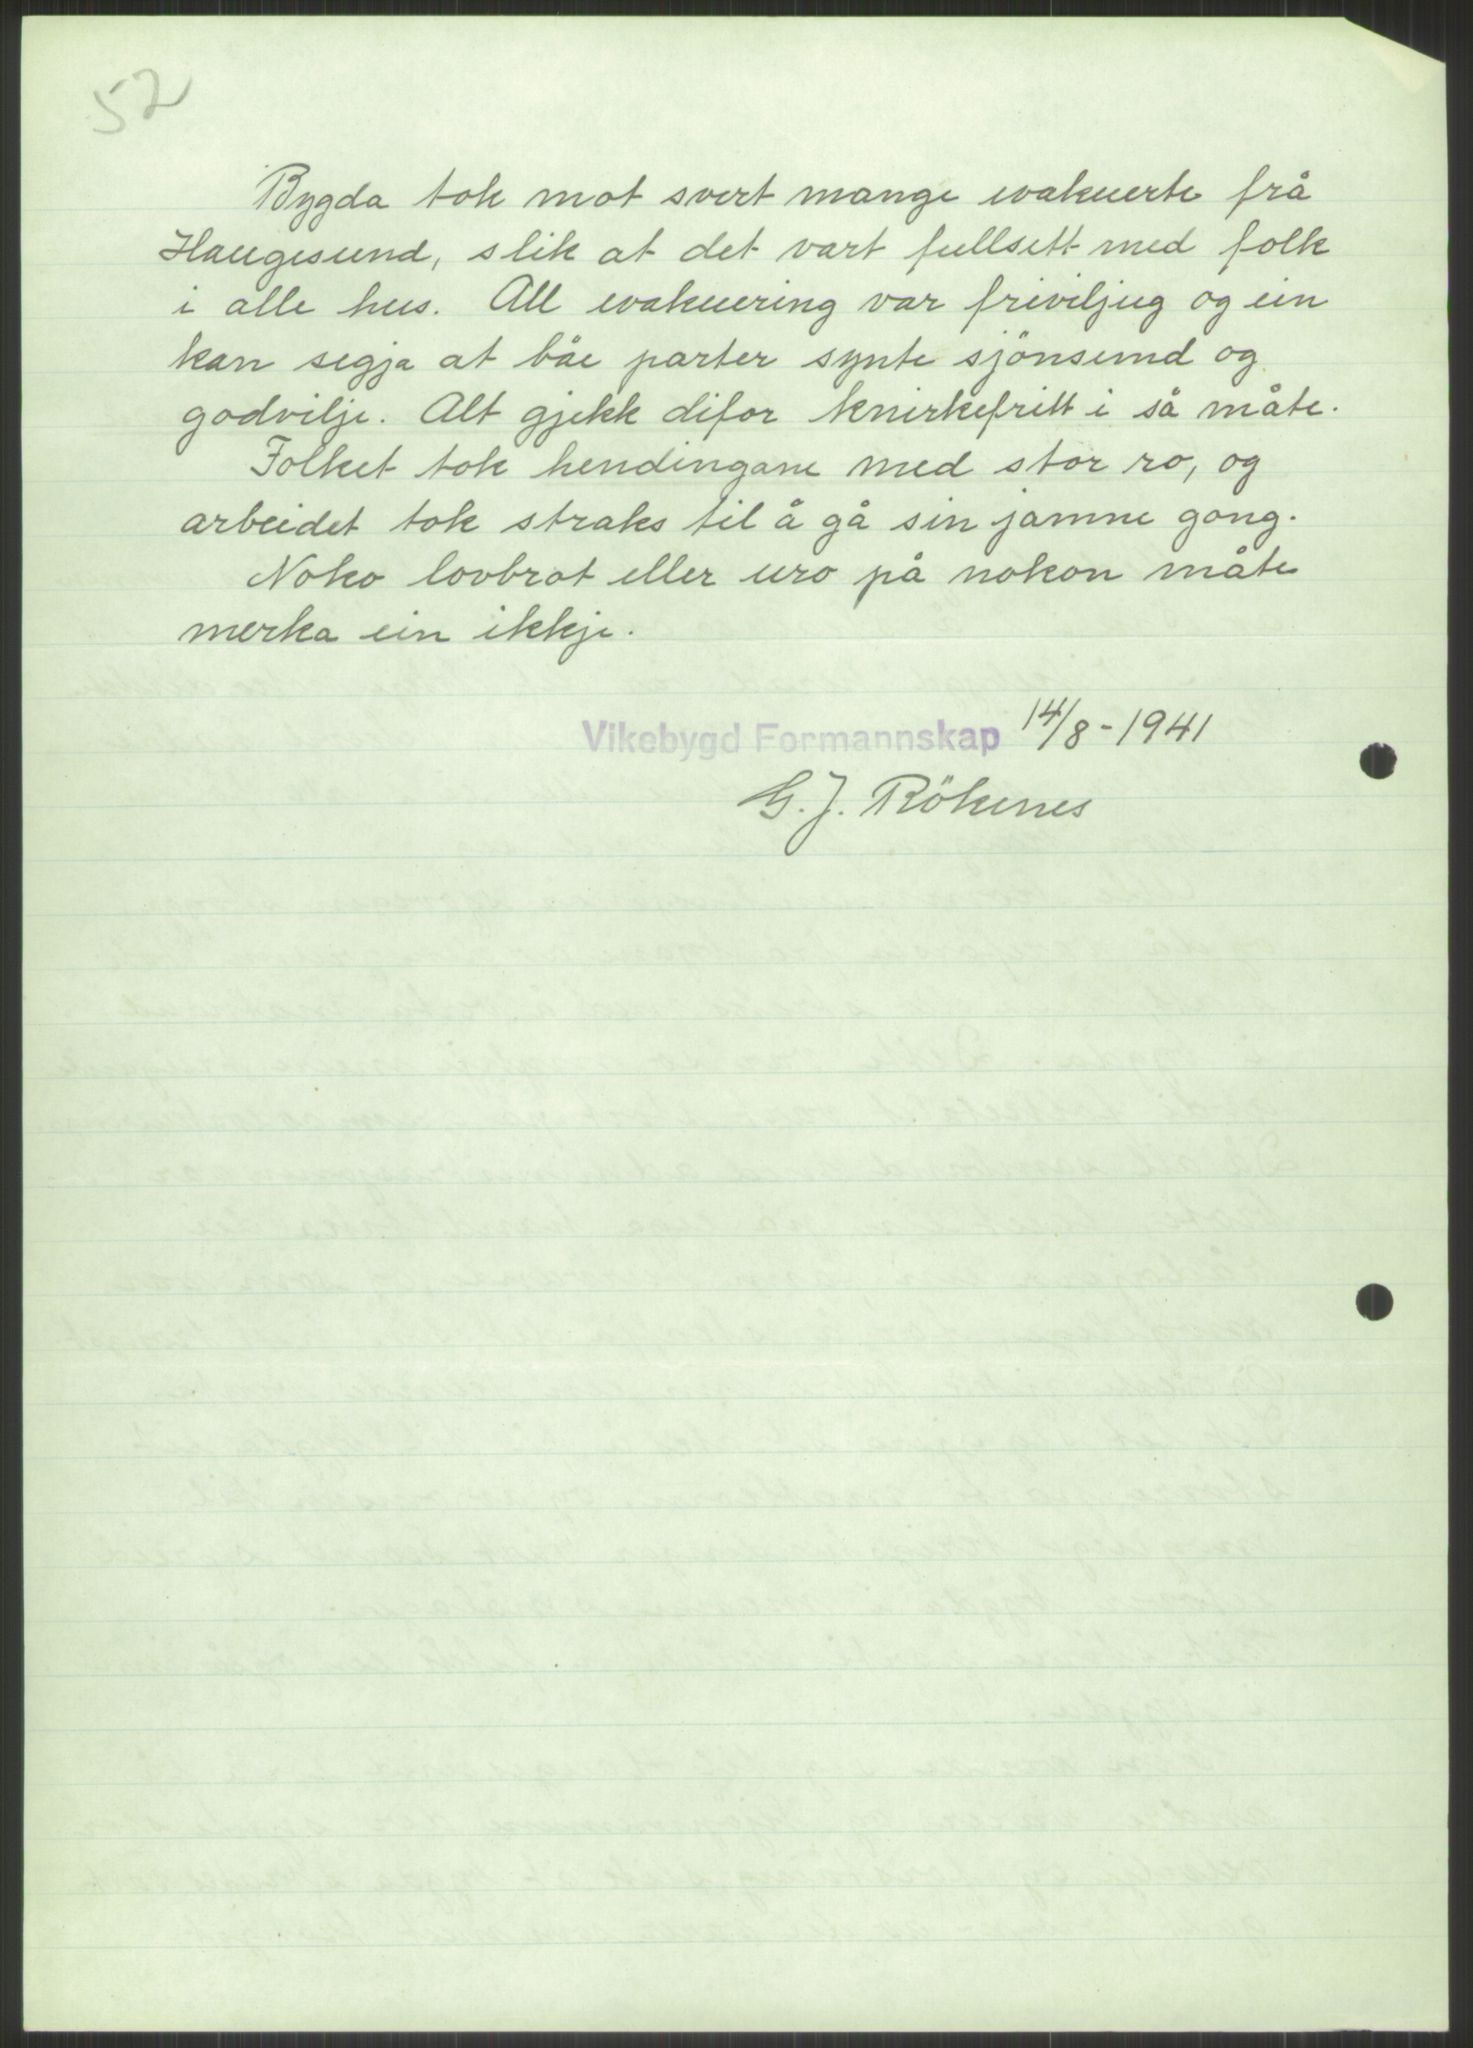 52
Bygda tok mot svert mange evakuerte frå
Haugesund, slik at det vart fullsett med folk
i alle hus. All evakuering var friviljug og ein
kan segja at båe parter synte sjönsemd og
godvilje. Alt gjekk difor knirkefritt i så måte.
Folket tok hendingane med stor ro, og
arbeidet tok straks til å gå sin jamne gong.
Noko lovbrot eller uro på nokon måte
merka ein ikkje.
Vikebygd Formannskap 14/8-1941
G. J. Rökenes